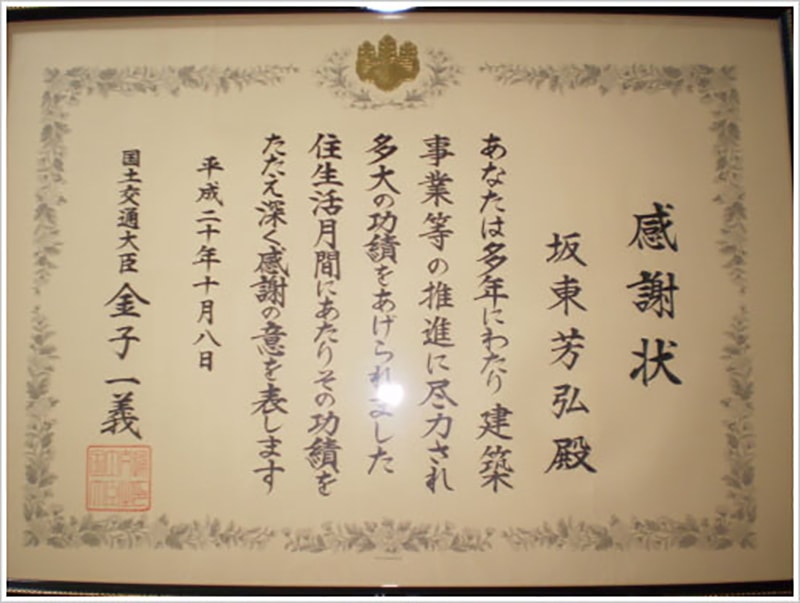 感謝状
坂東芳弘殿
あなたは多年にわたり建築
事業等の推進に尽力され
多大の功績をあげられました
住生活月間にあたりその功績を
たたえ深く感謝の意を表します
平成二十年十月八日
国土交通大臣 金子一義